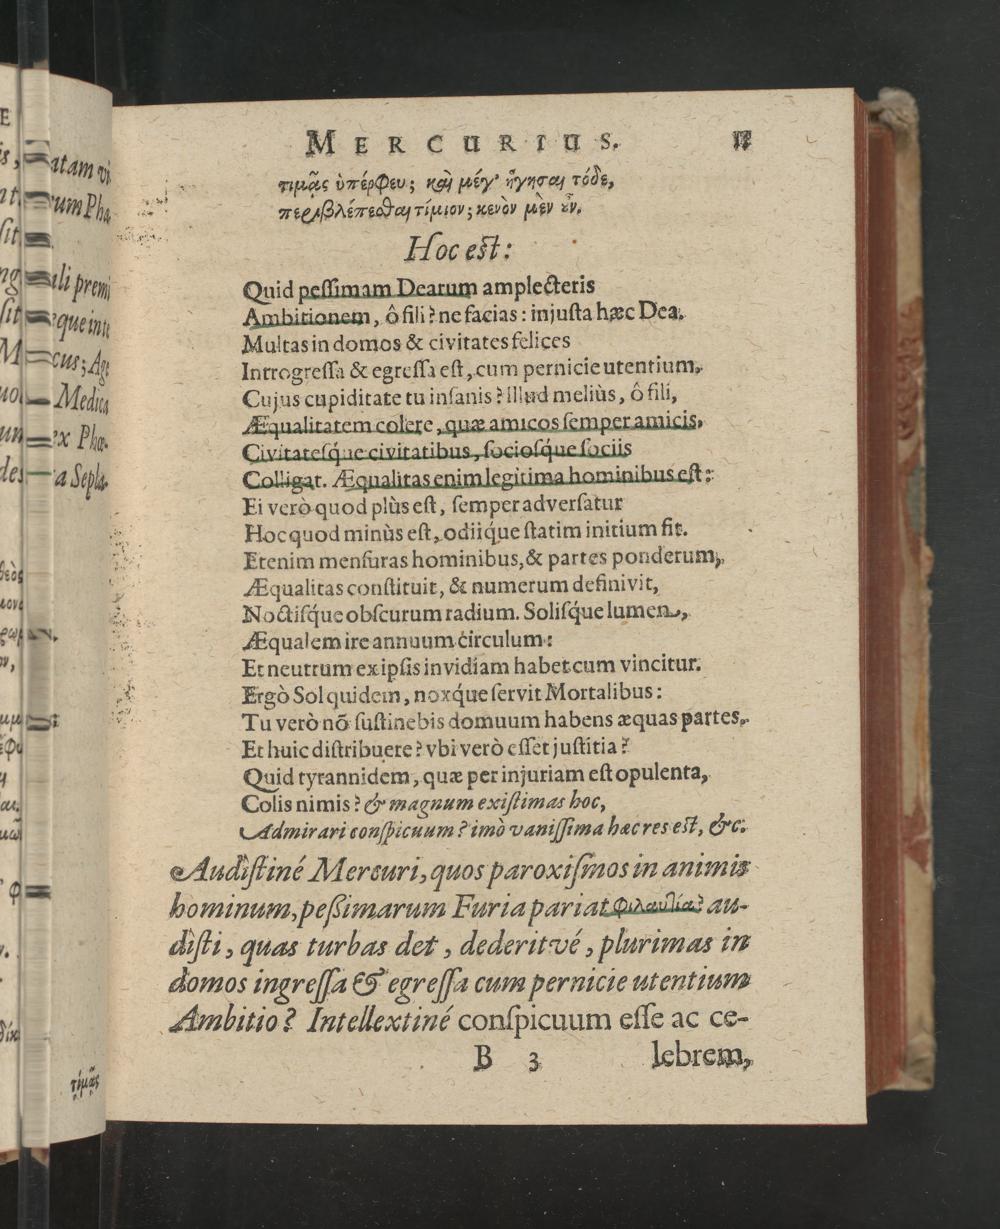 MERCURIUS.
τιμᾷς ὑπέρφευ; καὶ μέγ' ἥγησαι τόδε,
περιβλέπεσθαι τίμιον; κενὸν μὲν οὖν.
Hoc est:
Quid pessimam Dearum amplecteris
Ambitionem, ô fili? ne facias: injusta hæc Dea.
Multas in domos & civitates felices
Introgressa & egressa est, cum pernicie utentium,
Cujus cupiditate tu insanis? illud meliùs, ô fili,
Æqualitatem colere, quæ amicos semper amicis,
Civitatesq́ue civitatibus, sociosq́ue sociis
Colligat. Æqualitas enim legitima hominibus est:
Ei verò quod plùs est, semper adversatur
Hoc quod minùs est, odiiq́ue statim initium fit.
Etenim mensuras hominibus, & partes ponderum,
Æqualitas constituit, & numerum definivit,
Noctisq́ue obscurum radium. Solisq́ue lumen,
Æqualem ire annuum circulum:
Et neutrum ex ipsis invidiam habet cum vincitur.
Ergò Sol quidem, noxq́ue servit Mortalibus:
Tu verò nõ sustinebis domuum habens æquas partes,
Et huic distribuere? vbi verò esset justitia?
Quid tyrannidem, quæ per injuriam est opulenta,
Colis nimis? & magnum existimas hoc,
Admirari conspicuum? imò vanissima hæc res est, &c.
Audistiné Mercuri, quos paroxismos in animis
hominum, pessimarum Furia pariat φιλαυτία? au-
disti, quas turbas det, dederitvé, plurimas in
domos ingressa & egressa cum pernicie utentium
Ambitio? Intellextiné conspicuum esse ac ce-
B 3 lebrem,